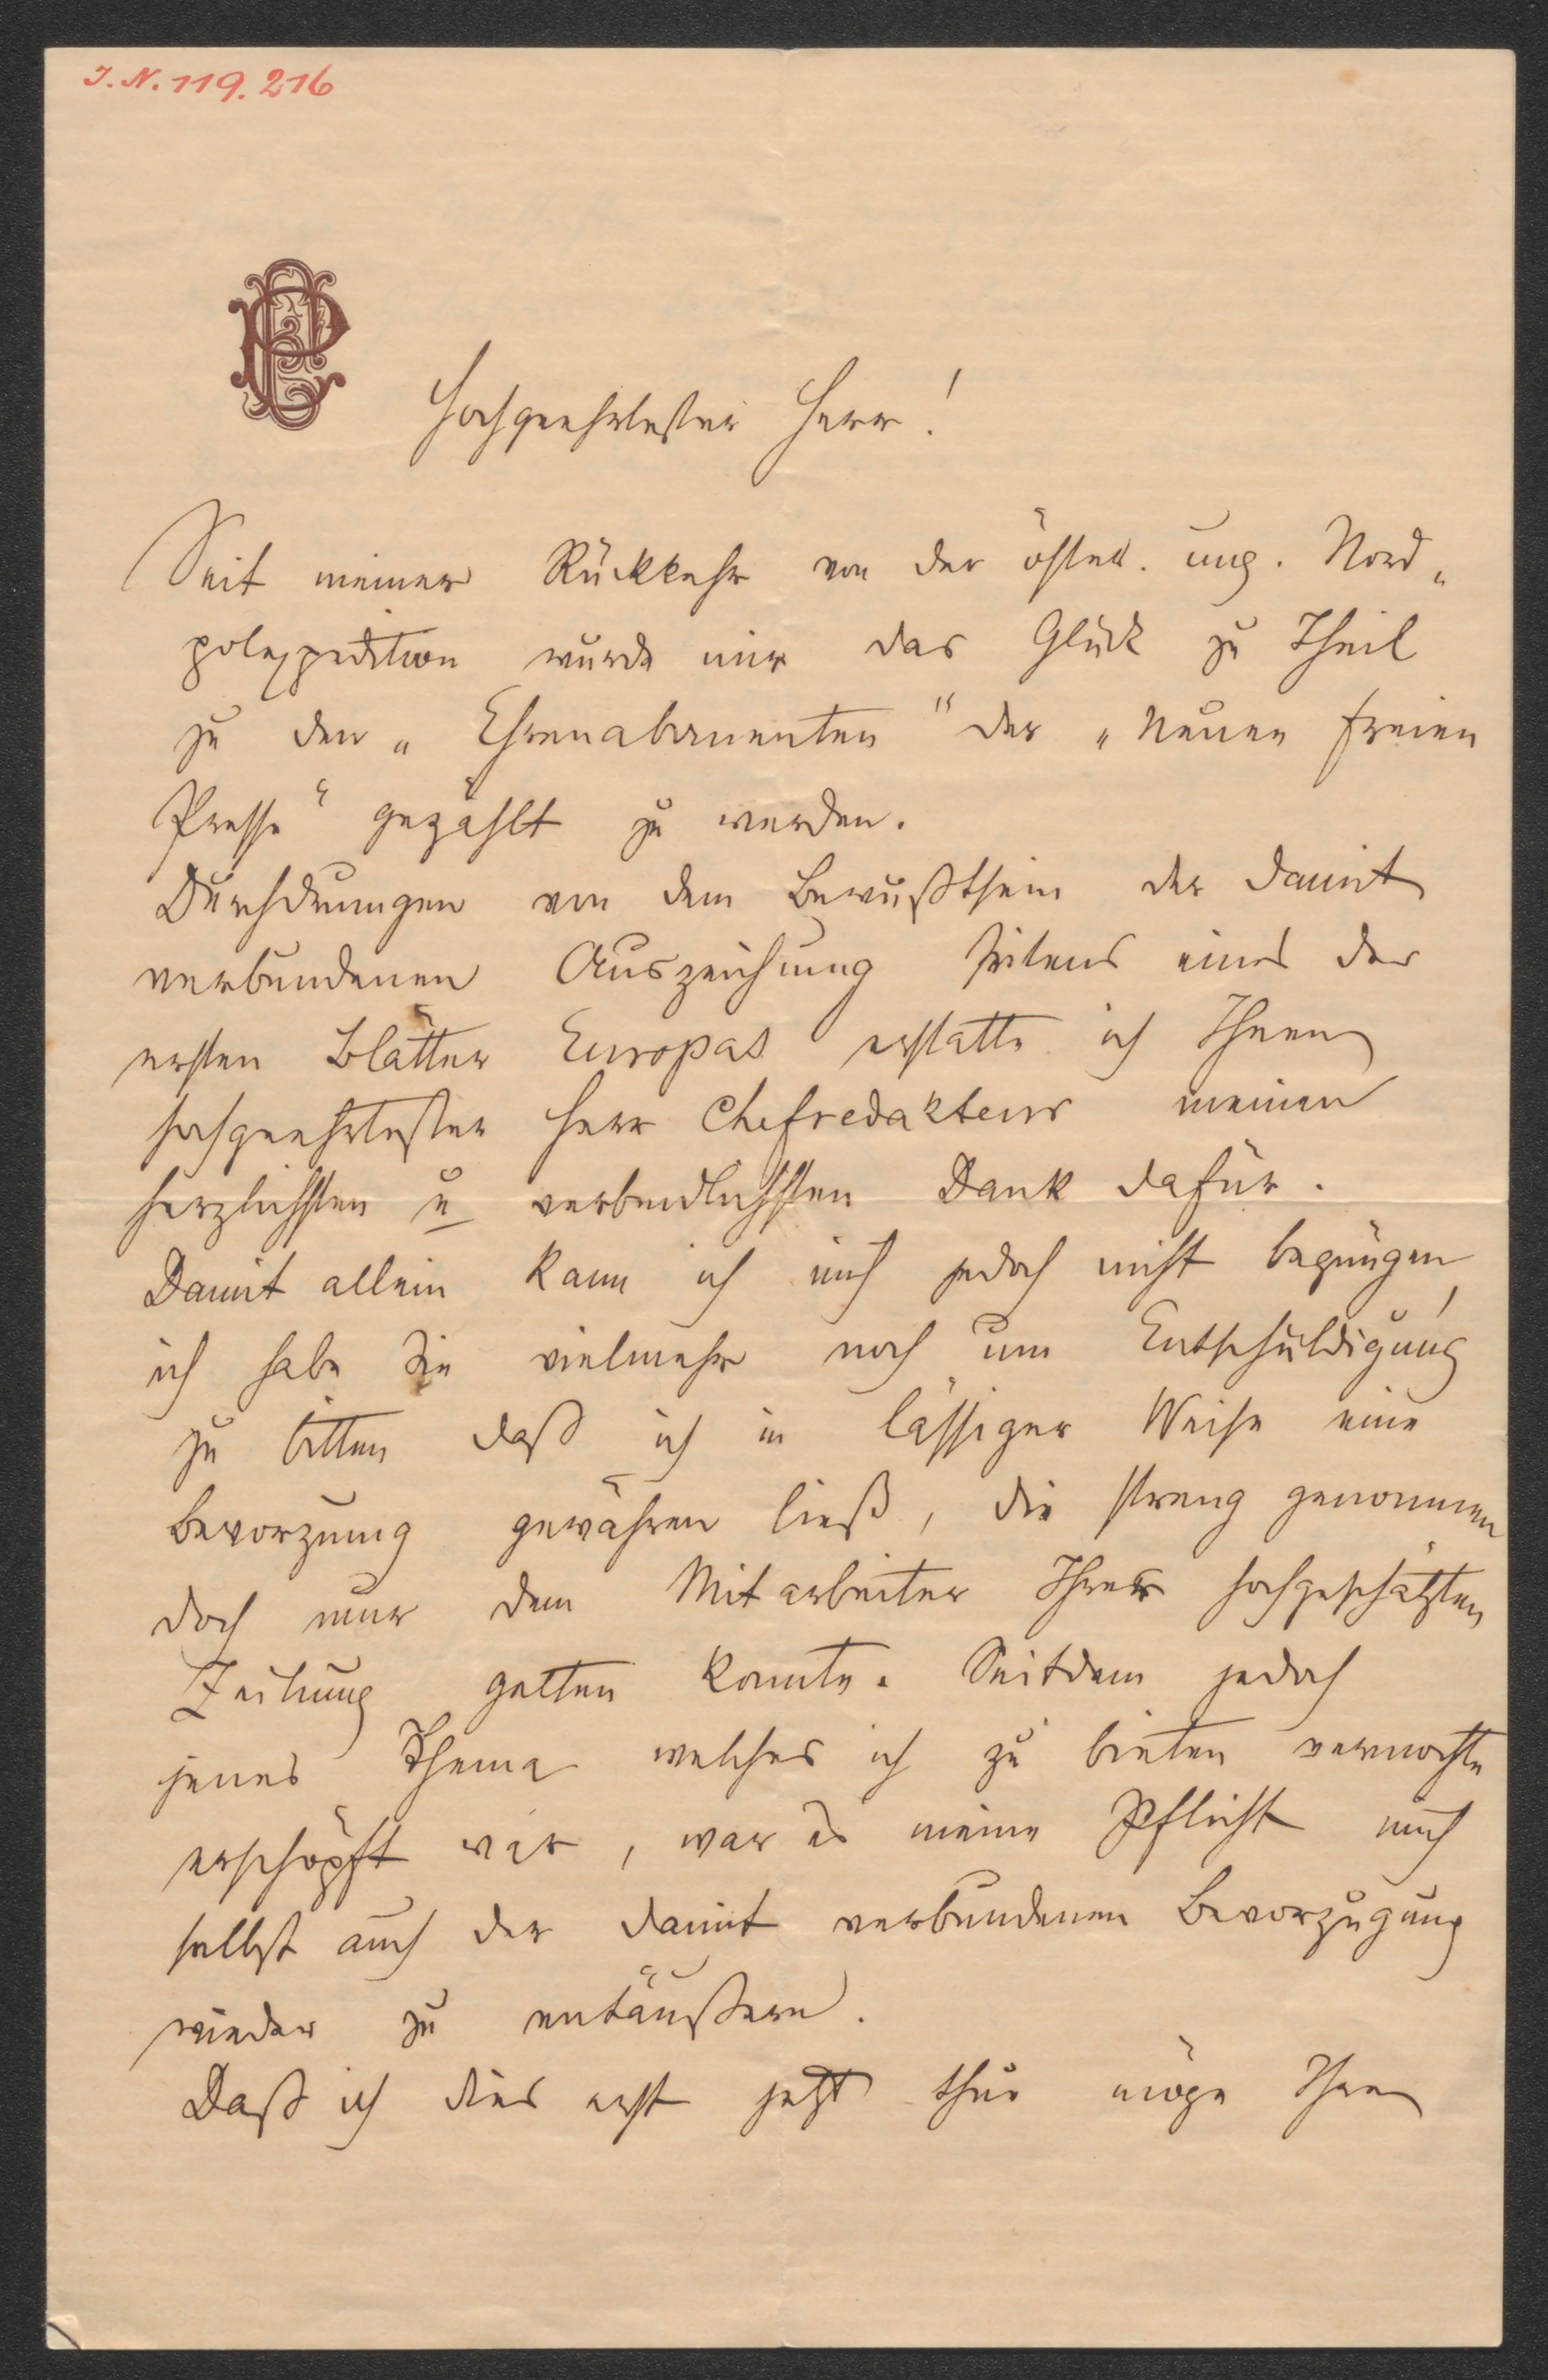 J.N. 119.216
Hochgeehrtester Herr!
Seit meiner Rückkehr von der österr. ung. Nord„
polexpedition wurde mir das Glück zu Theil
zu den „Ehrenabonnenten" der „Neuen freien
Presse" gezählt zu werden.
Durchdrungen von dem Bewußtsein der damit
verbundenen Auszeichung seitens eines der
ersten Blätter Europas erstatte ich Ihnen
hochgeehrtester Herr Chefredakteur meinen
herzlichsten u verbindlichsten Dank dafür.
Damit allein kann ich mich jedoch nicht begnügen,
ich habe Sie vielmehr noch um Entschuldigung
zu bitten daß ich in lässiger Weise eine
Bevorzung gewähren ließ, die streng genommen
doch nur dem Mitarbeiter Ihrer hochgeschätzten
Zeitung gelten konnte. Seitdem jedoch
jenes Thema welches ich zu bieten vermochte
erschöpft war, war es meine Pflicht mich
selbst auch der damit verbundenen Bevorzugung
wieder zu entäußern.
Daß ich dies erst jetzt thue möge Ihnen